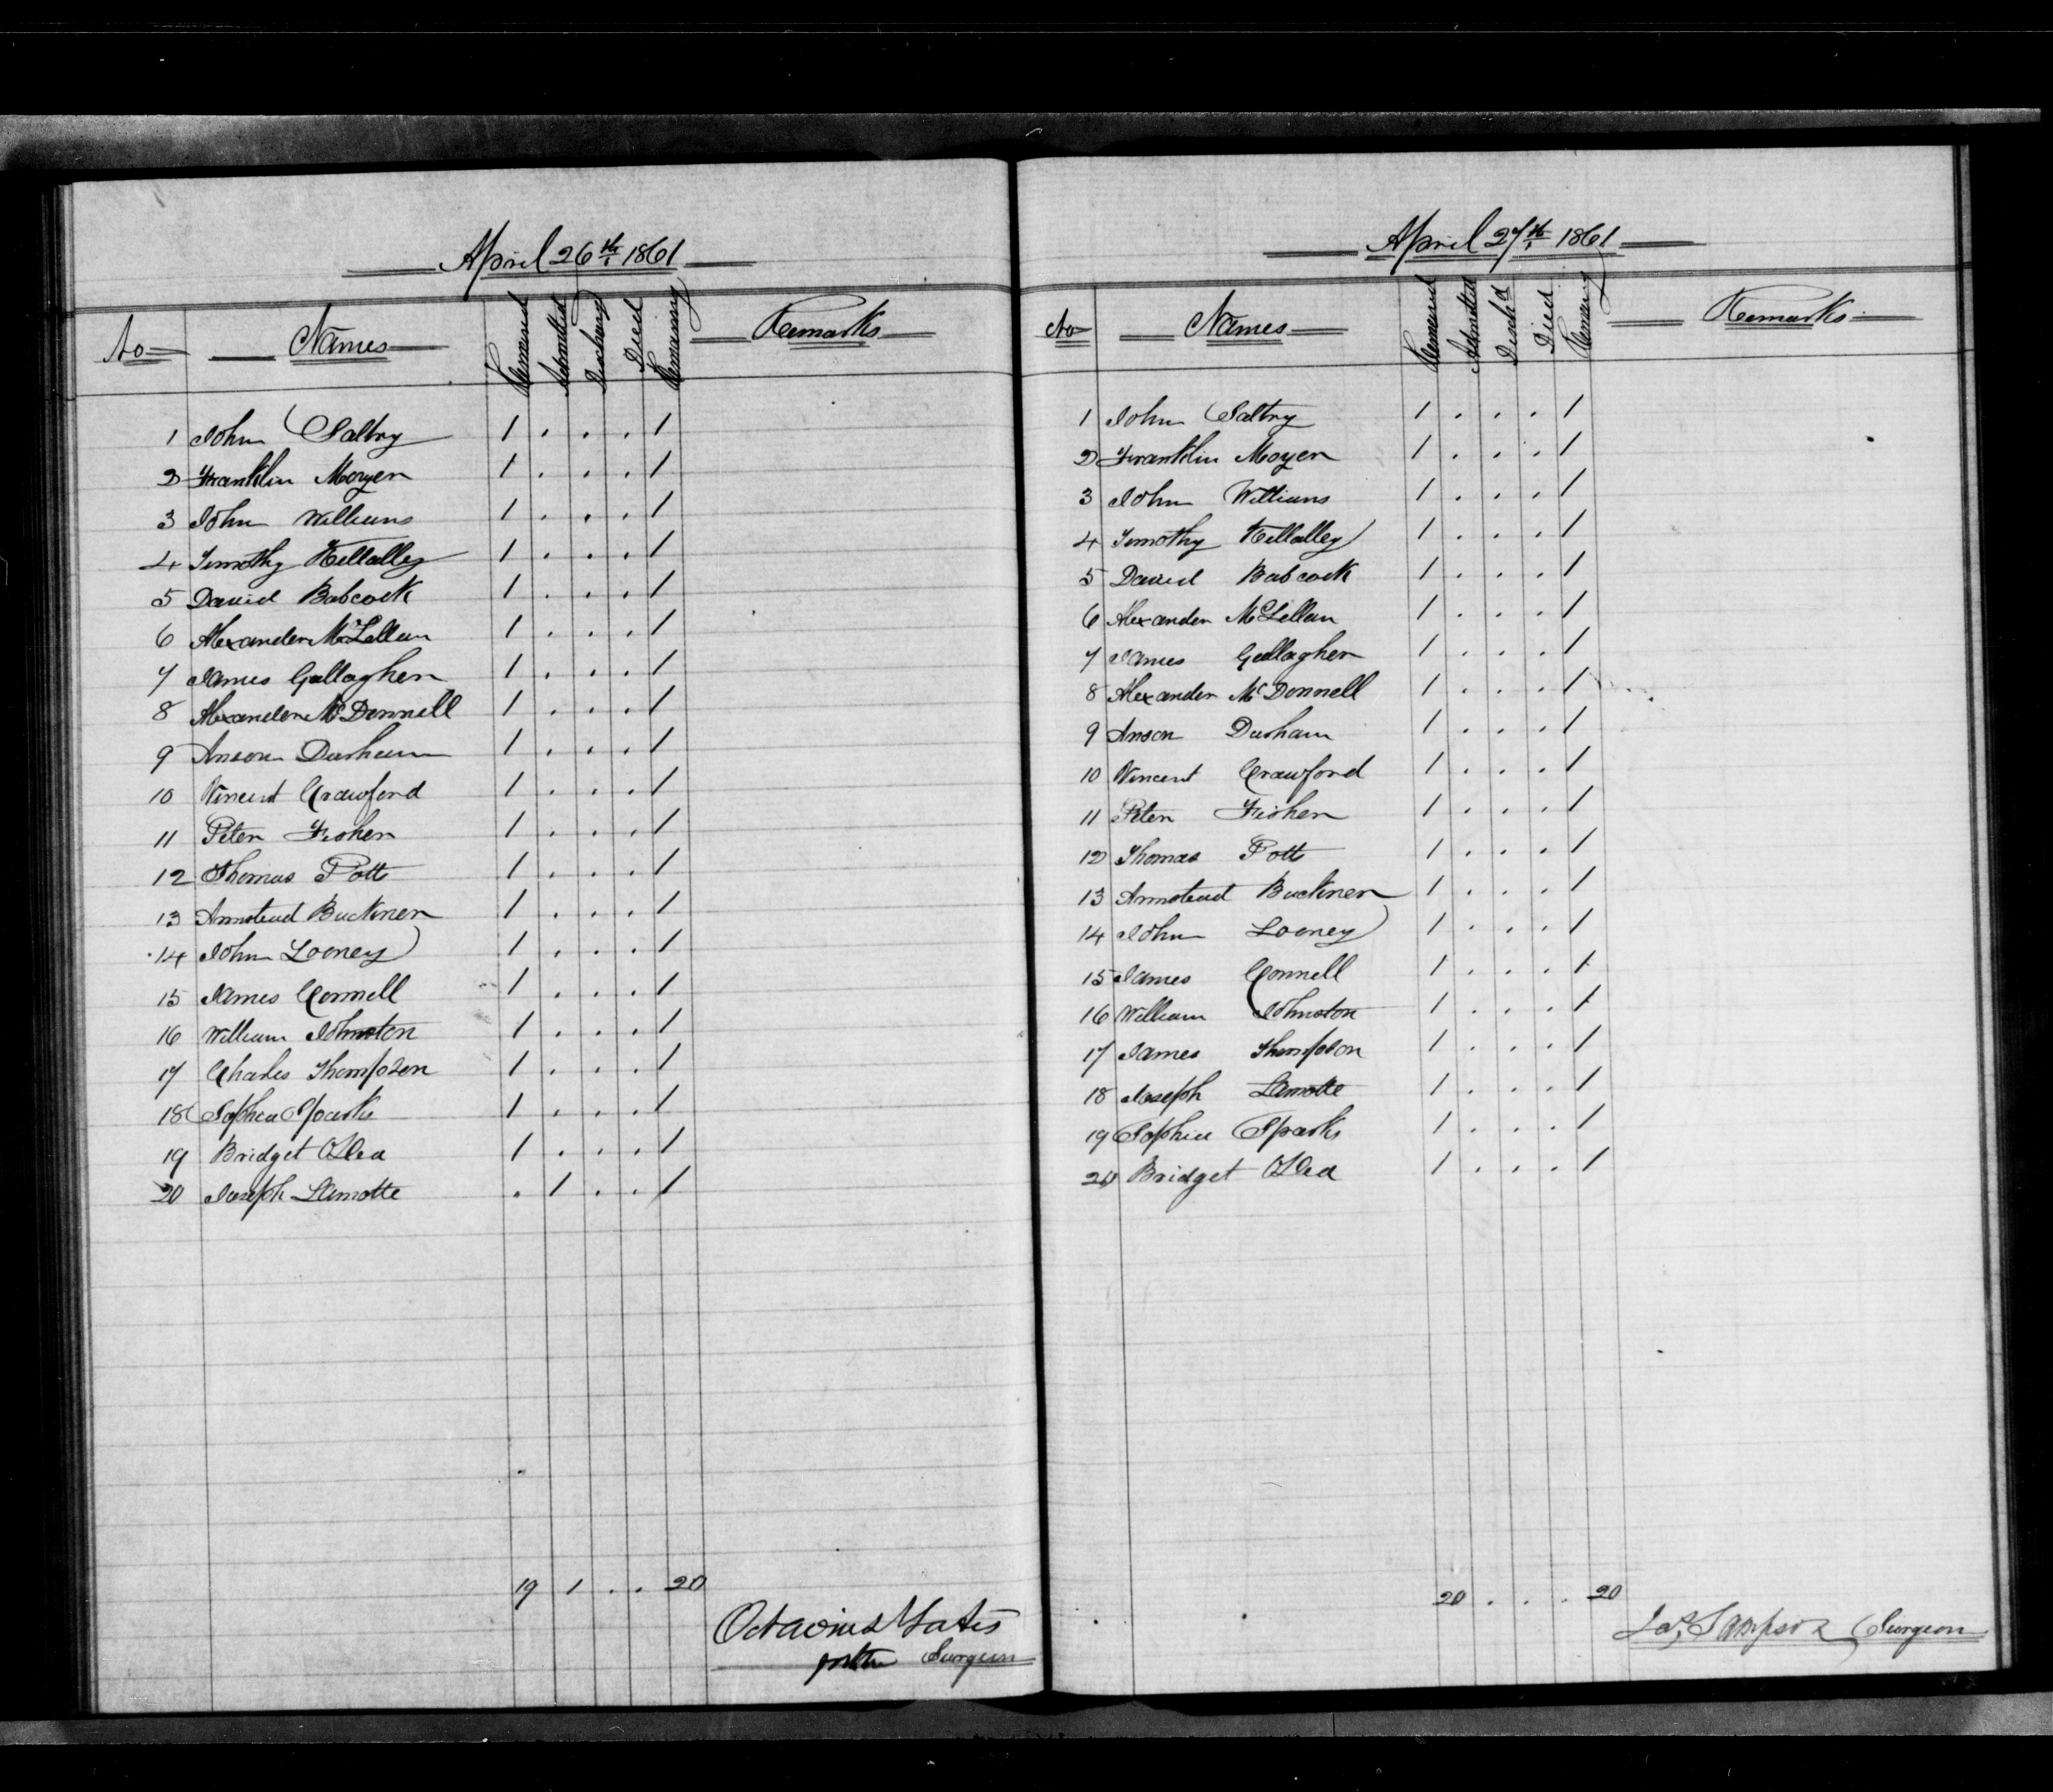 April 26th 1861
No Names Remained Admitted Discharged Died Remaining Remarks
1 John Saltry 1 . . . 1
2 Franklin Moyer 1 . . . 1
3 John Williams 1 . . . 1
4 Timothy Kellalley 1 . . . 1
5 David Babcock 1 . . . 1
6 Alexander McLellan 1 . . . 1
7 James Gallagher 1 . . . 1
8 Alexander McDonnell 1 . . . 1
9 Anson Durham 1 . . . 1
10 Vincent Crawford 1 . . . 1
11 Peter Fisher 1 . . . 1
12 Thomas Potts 1 . . . 1
13 Armstead Buckner 1 . . . 1
14 John Looney 1 . . . 1
15 James Connell 1 . . . 1
16 William Johnston 1 . . . 1
17 Charles Thompson 1 . . . 1
18 Sophia Sparks 1 . . . 1
19 Bridget OLea 1 . . . 1
20 Joseph Lamotte . 1 . . 1
19 1 . . 20
Octavius Yates
for the Surgeon
April 27th 1861
No Names Remained Admitted Disch'd Died Remaing Remarks
1 John Saltry 1 . . . 1
2 Franklin Moyer 1 . . . 1
3 John Williams 1 . . . 1
4 Timothy Kellalley 1 . . . 1
5 David Babcock 1 . . . 1
6 Alexander McLellan 1 . . . 1
7 James Gallagher 1 . . . 1
8 Alexander McDonnell 1 . . . 1
9 Anson Durham 1 . . . 1
10 Vincent Crawford 1 . . . 1
11 Peter Fisher 1 . . . 1
12 Thomas Potts 1 . . . 1
13 Armstead Buckner 1 . . . 1
14 John Looney 1 . . . 1
15 James Connell 1 . . . 1
16 William Johnston 1 . . . 1
17 James Thompson 1 . . . 1
18 Joseph Lamotte 1 . . . 1
19 Sophia Sparks 1 . . . 1
20 Bridget OLea 1 . . . 1
20 . . . 20
Jas Sampson Surgeon